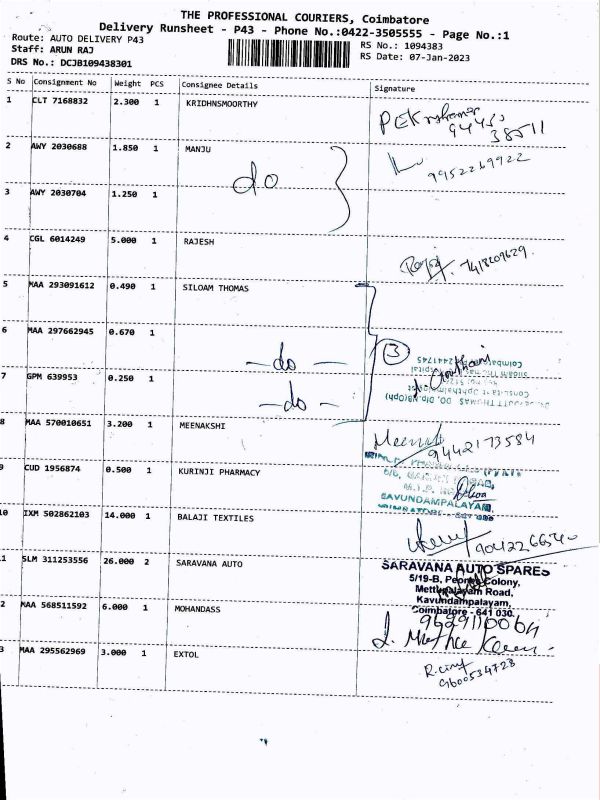 THE PROFESSIONAL COURIERS, Coimbatore
Delivery Runsheet - P43 - Phone No.:0422-3505555 - Page No.:1
Route: AUTO DELIVERY P43
RS No.: 1094383
Staff: ARUN RAJ
RS Date: 07-Jan-2023
DRS No.: DCJB109438301
S No Consignment No Weight PCS Consignee Details Signature
1 CLT 7168832 2.300 1 KRIDHNSMOORTHY
38511
2 AWY 2030688 1.850 1 MANJU
9952269922
do
3 AWY 2030704 1.250 1
4 CGL 6014249 5.000 1 RAJESH
7418209629
5 MAA 293091612 0.490 1 SILOAM THOMAS
6 MAA 297662945 0.670 1
-do- 3
Coimbatore 2441745
7 GPM 639953 0.250 1
-do-
8 MAA 570010651 3.200 1 MEENAKSHI
9442173584
9 CUD 1956874 0.500 1 KURINJI PHARMACY
GAVUNDAMPALAYAM,
10 IXM 502862103 14.000 1 BALAJI TEXTILES
9042266540
1 SLM 311253556 26.000 2 SARAVANA AUTO
SARAVANA AUTO SPARES
5/19-B, Peones Colony,
Mettupalayam Road,
Kavundampalayam,
Coimbatore - 641 030.
2 MAA 568511592 6.000 1 MOHANDASS
3 MAA 295562969 3.000 1 EXTOL
9600534728